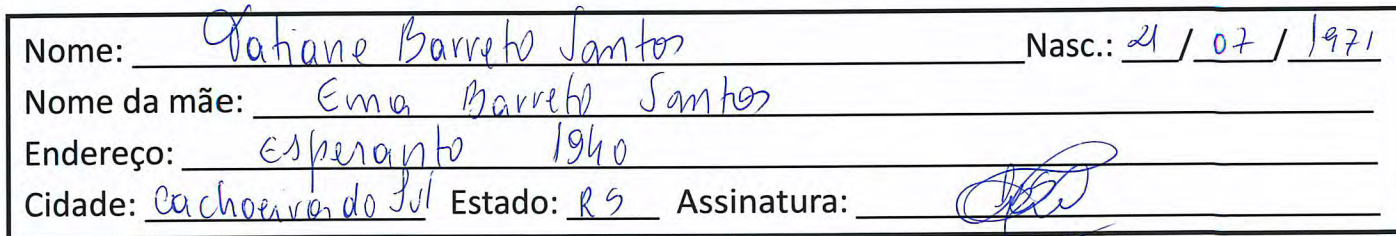 Nome: Tatiane Barreto Santos Nasc.: 21 / 07 / 1971
Nome da mãe: Ema Barreto Santos
Endereço: Esperanto 1940
Cidade: Cachoeira do Sul Estado: RS Assinatura: